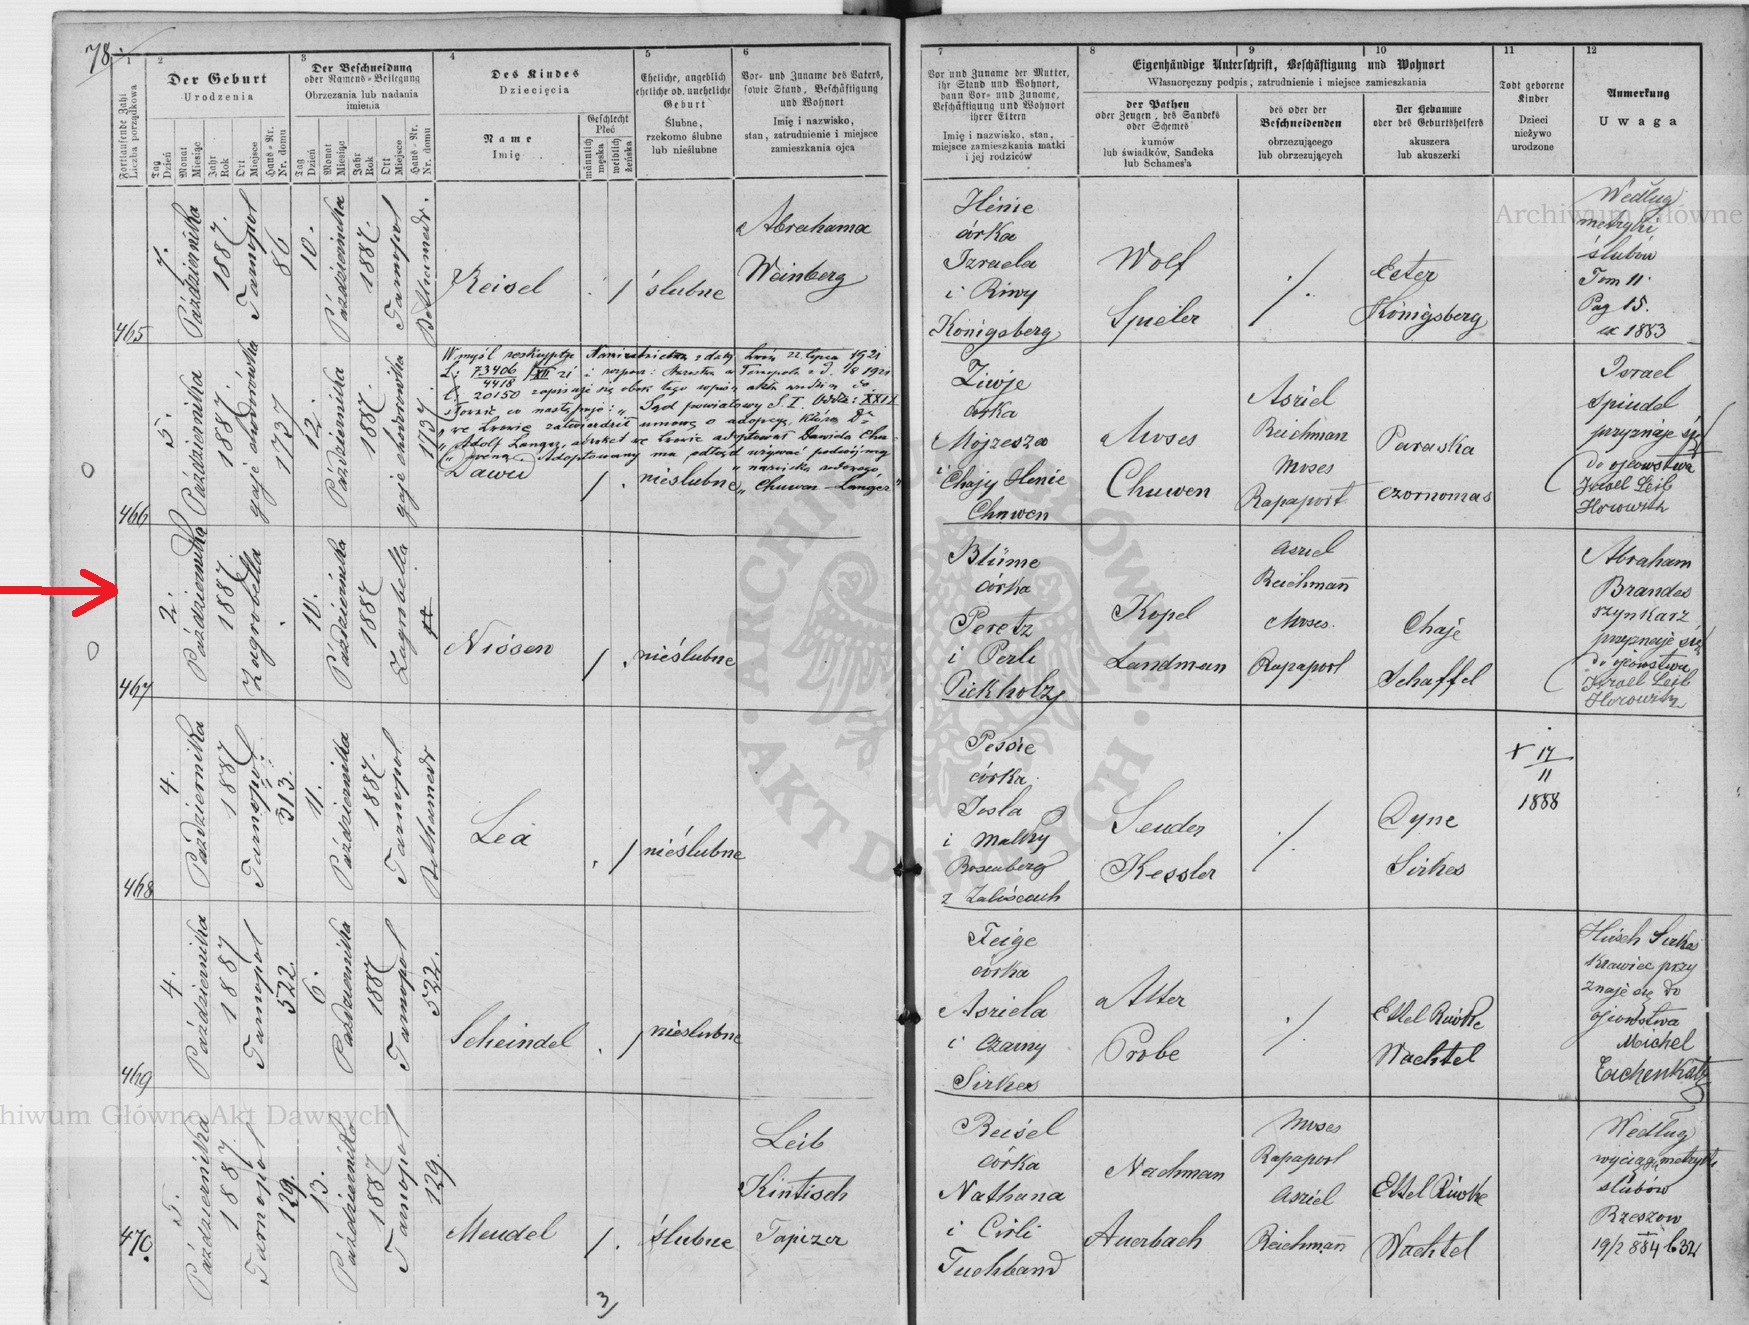 78.
1
2
3
4
5
6
7
8
9
10
11
12
Fortlaufende Zahl
Liczba porządkowa
Der Geburt
Urodzenia
Tag
Dzień
Monat
Miesiąc
Jahr
Rok
Ort
Miejsce
Haus-Nr.
Nr. domu
Der Beschneidung
oder Namens-Beilegung
Obrzezania lub nadania
imienia
Tag
Dzień
Monat
Miesiąc
Jahr
Rok
Ort
Miejsce
Haus-Nr.
Nr. domu
Des Kindes
Dziecięcia
Name
Imię
Geschlecht
Płeć
männlich
męska
weiblich
żeńska
Eheliche, angeblich
eheliche od. uneheliche
Geburt
Ślubne,
rzekomo ślubne
lub nieślubne
Vor- und Zuname des Vaters,
sowie Stand, Beschäftigung
und Wohnort
Imię i nazwisko,
stan, zatrudnienie i miejsce
zamieszkania ojca
Vor und Zuname der Mutter,
ihr Stand und Wohnort,
dann Vor- und Zuname,
Beschäftigung und Wohnort
ihrer Eltern
Imię i nazwisko, stan,
miejsce zamieszkania matki
i jej rodziców
Eigenhändige Unterschrift, Beschäftigung und Wohnort
Własnoręczny podpis, zatrudnienie i miejsce zamieszkania
der Pathen
oder Zeugen, des Sandeks
oder Schemes
kumów
lub świadków, Sandeka
lub Schames'a
des oder der
Beschneidenden
obrzezującego
lub obrzezujących
Der Hebamme
oder des Geburtshelfers
akuszera
lub akuszerki
Todt geborene
Kinder
Dzieci
nieżywo
urodzone
Anmerkung
Uwaga
465
7.
Października
1887.
Tarnopol
86
10.
Października
1887.
Tarnopol
Bethamedr.
Reisel
. /
ślubne
Abrahama
Weinberg
Hénie
córka
Izraela
i Riwy
Königsberg
Wolf
Spieler
./.
Ester
Königsberg
Według
metryki
ślubów
Tom 11.
Pag 15.
ex 1883
466
5.
Października
1887.
gaje chodorówka
1737
12.
Października
1887.
gaje chodorówka
1737
W myśl reskryptu Namiestnictwa z daty Lwów 22 lipca 1921
L: 73406/4418 XII zi i rozporz: Starostwa w Tarnopolu z d. 1/8 1921
L: 20150 zapisuje się obok tego wpisu aktu urodzin do
słownie co następuje: „ Sąd powiatowy S. I. Oddz: XXII
„ we Lwowie zatwierdził umowę o adopcyę, którą Dr
„ Adolf Langer, adwokat we Lwowie adoptował Dawida Chu-
„ wena. Adoptowany ma odtąd używać podwójnego
„ nazwiska rodowego,
„ Chuwen-Langer"
Dawid
/ .
nieślubne
Ziwje
córka
Mojżesza
i Chaji Henie
Chuwen
Moses
Chuwen
Asriel
Reichman
Moses
Rapaport
Paraska
Czornomas
Israel
Spindel
przyznaje się
do ojcowstwa
Israel Leib
Horowitz
467
2.
Października
1887.
Zagrobella
10.
Października
1887
Zagrobella
44
Nissen
/ .
nieślubne
Blüme
córka
Peretz
i Perli
Pickholz
Kopel
Landman
Asriel
Reichmann
Moses.
Rapaport
Chaje
Schaffel
Abraham
Brandes
szynkarz
przyznaje się
do ojcowstwa
Israel Leib
Horowitz
468
4.
Października
1887
Tarnopol
313.
11.
Października
1887.
Tarnopol
Bethamedr
Lea
. /
nieślubne
Pessie
córka
Josla
i Malky
Rosenberg
z Załóscach
Sender
Kessler
./.
Dyne
Sirkes
† 17/11
1888
469
4.
Października
1887
Tarnopol
522.
6.
Października
1887
Tarnopol
522.
Scheindel
. /
nieślubne
Feige
córka
Asriela
i Czarny
Sirkes
Alter
Probe
./.
Ettel Riwke
Wachtel
Hirsch Sirkes
krawiec przy
znaje się do
ojcowstwa
Michel
Eichenkatz
470.
5.
Października
1887.
Tarnopol
129.
13.
Października
1887
Tarnopol
129.
Mendel
/ .
ślubne
Leib
Kintisch
Tapizer
Reisel
córka
Nathana
i Cirli
Tuchband
Nachman
Auerbach
Moses
Rapaport
Asriel
Reichmann
Ettel Riwke
Wachtel
Według
wyciągu metryki
ślubów
Rzeszow
19/2 884 l. 32
3/
Archiwum Główne
hiwum Główne Akt Dawnych
ARCHIWUM GŁÓWNE
AKT DAWNYCH